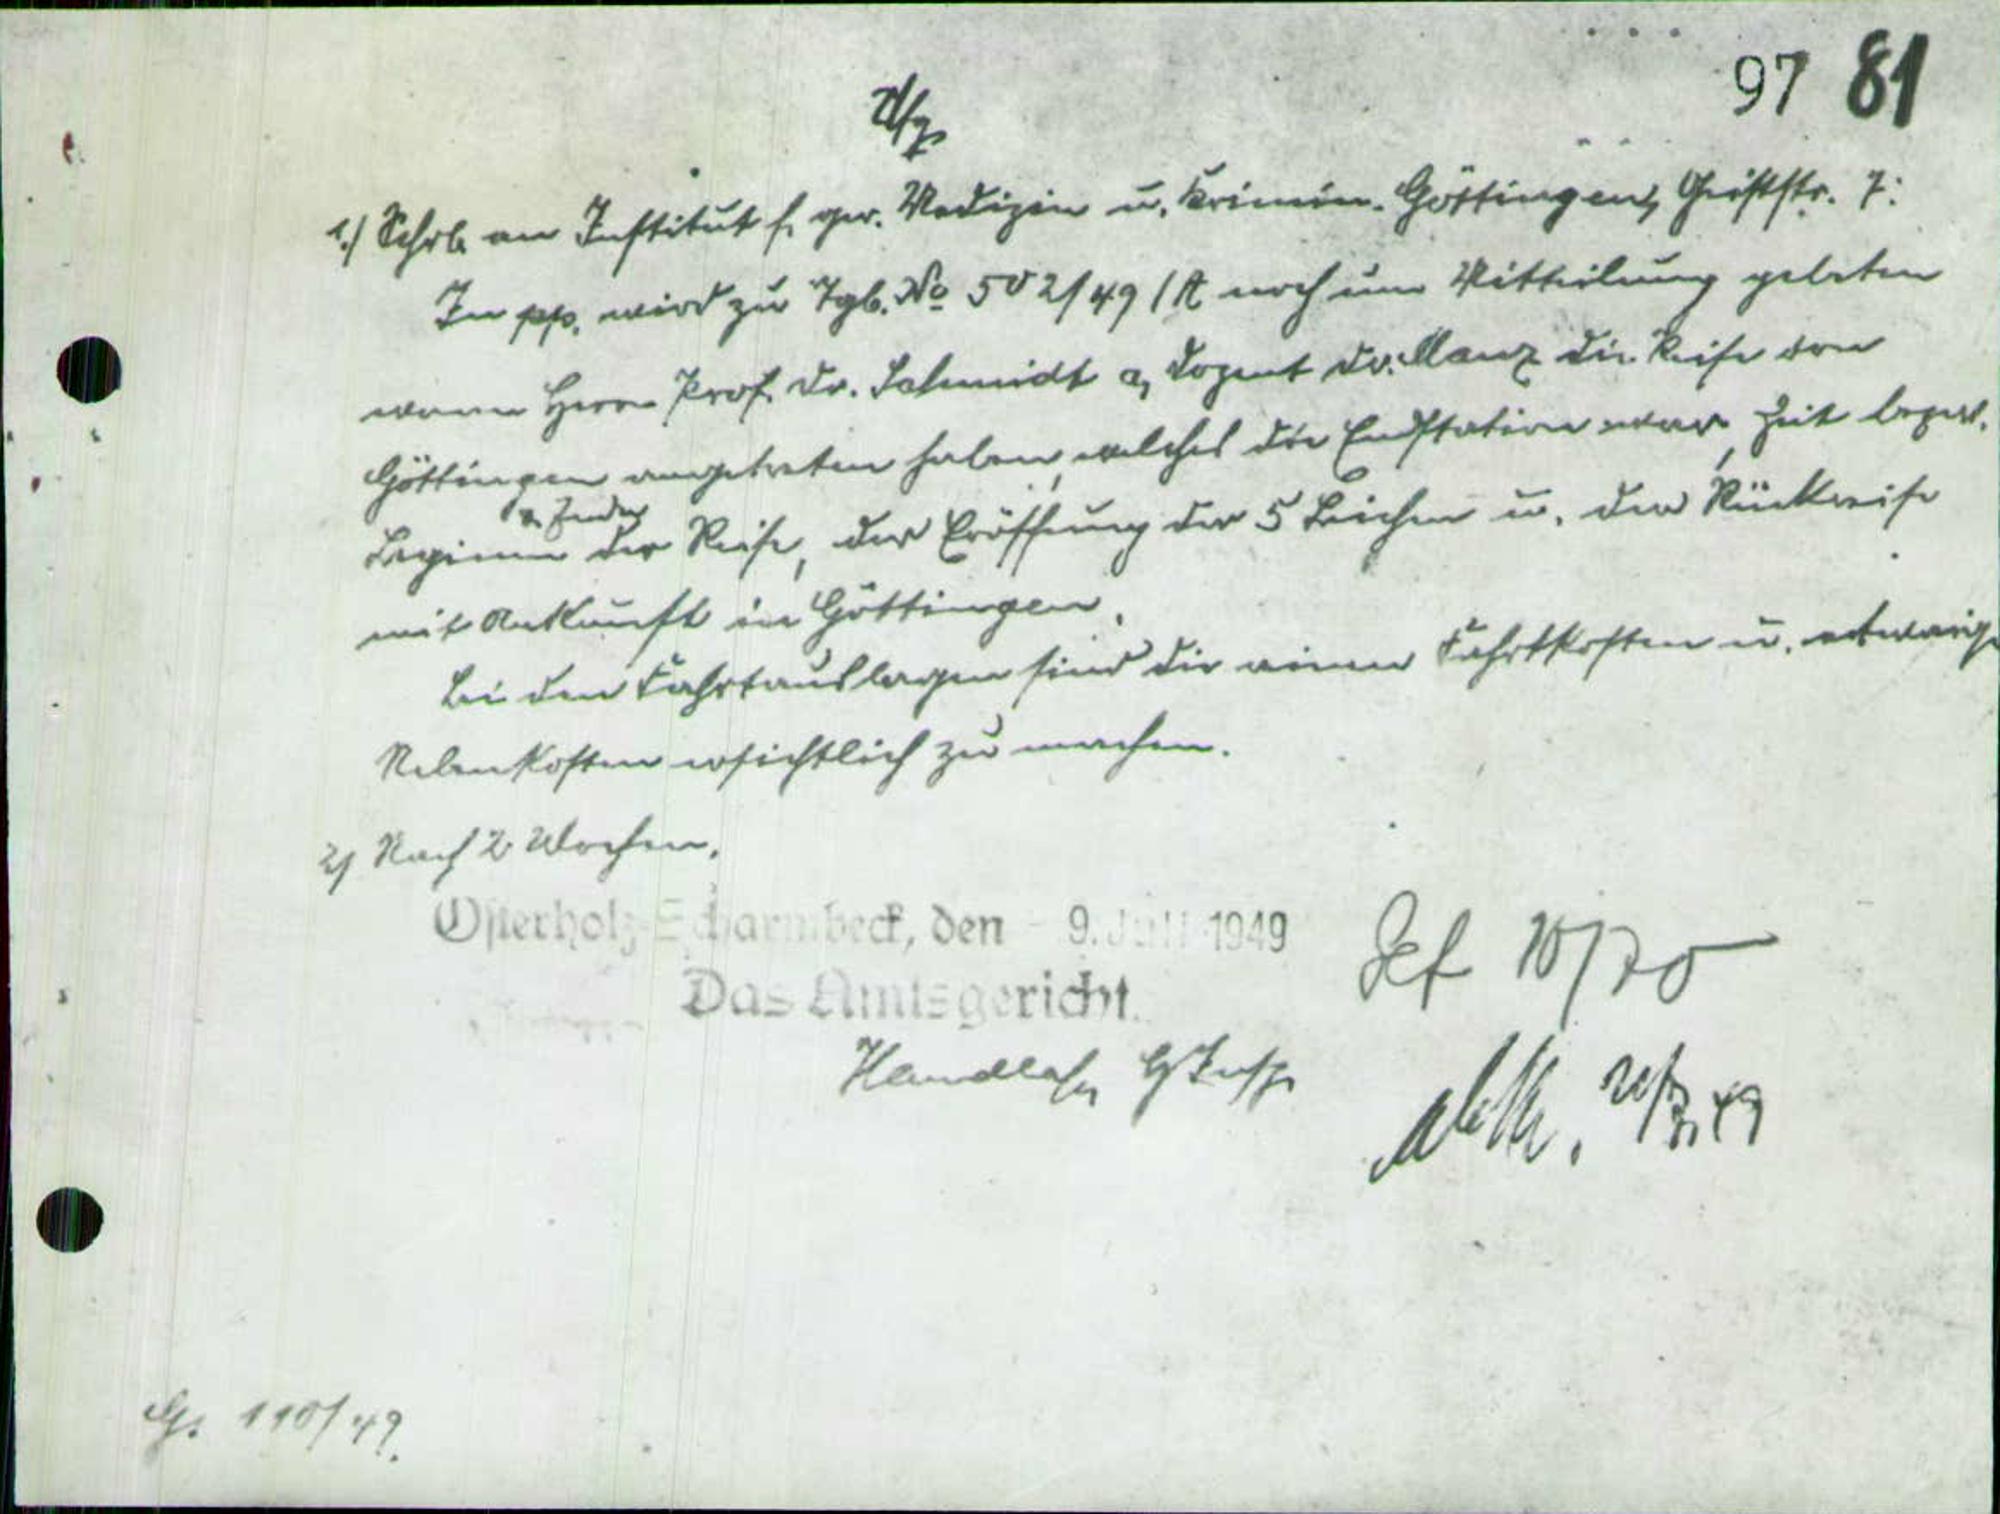 97 81
Vfg.
1.) Schrb. an Institut f. ger. Medizin u. Krimin. Göttingen, Geiststr. 7:
In pp. wird zu Tgb. No 502/49 /A noch um Mitteilung gebeten
wann Herr Prof. Dr. Schmidt u. Dozent Dr. Manz die Reise von
Göttingen angetreten haben, welches die Endstation war, Zeit bezw.
u. Ende
Beginn der Reise, der Eröffnung der 5 Leichen u. der Rückreise
mit Ankunft in Göttingen.
Bei den Fahrtauslagen sind die reinen Fahrtkosten u. etwaige
Nebenkosten ersichtlich zu machen.
2) Nach 2 Wochen.
Osterholz-Scharmbeck, den - 9. Juli 1949
Das Amtsgericht.
Gef 10/
49
G. 110/49.